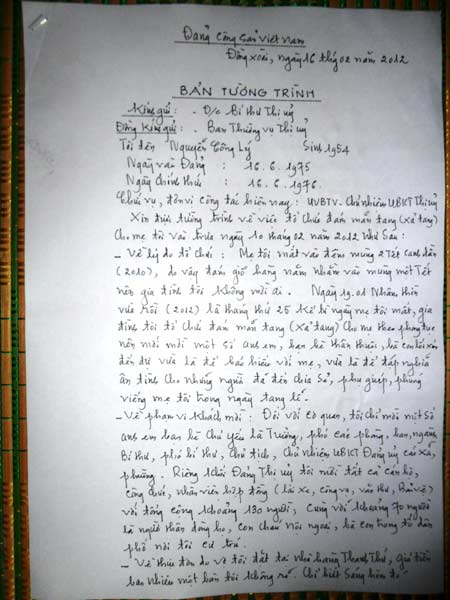 Đảng Cộng Sản Việt Nam
Đồng Xoài, ngày 16 tháng 02 năm 2012
BẢN TƯỜNG TRÌNH
Kính gửi: - Đ/c Bí thư Thị ủy
Đồng Kính gửi: - Ban Thường vụ Thị uỷ
Tôi tên Nguyễn Công Lý Sinh 1954
Ngày vào Đảng : 16.6.1975
Ngày chính thức : 16.6.1976.
Chức vụ, đơn vị công tác hiện nay: UVBTV. Chủ nhiệm UBKT Thị uỷ
Xin được tường trình về việc tổ chức đám mãn tang (xả tang)
Cho mẹ tôi vào trưa ngày 10 tháng 02 năm 2012 như sau:
- Về lý do tổ chức: Mẹ tôi mất vào đêm mùng 2 Tết canh dần
(2010), do vậy đám giỗ hàng năm nhằm vào mùng một Tết
nên gia đình tôi không mời ai. Ngày 19.01 Nhâm thìn
vừa rồi (2012) là tháng thứ 25 kể từ ngày mẹ tôi mất, gia
đình tôi tổ chức đám mãn tang (xả tang) cho mẹ theo phong tục
nên mới mời một số anh em, bạn bè thân thuộc, bà con lối xóm
đến dự vừa là để báo hiếu với mẹ, vừa là để đáp nghĩa
ân tình cho những người đã đến chia sẻ, phụ giúp, phúng
viếng mẹ tôi trong ngày tang lễ.
- Về phạm vi khách mời: Đối với cơ quan, tôi chỉ mời một số
anh em bạn bè chủ yếu là Trưởng, phó các phòng, ban, ngành,
Bí thư, phó bí thư, chủ tịch, chủ nhiệm UBKT Đảng uỷ các xã,
phường. Riêng khối Đảng Thị uỷ tôi mời tất cả cán bộ,
công chức, nhân viên hợp đồng (lái xe, công vụ, văn thư, Bảo vệ)
với tổng cộng khoảng 130 người, cùng với khoảng 70 người
là người thân dòng họ, con cháu nội ngoại, bà con trong tổ dân
phố nơi tôi cư trú.
- Về thực đơn do vợ tôi đặt tại nhà hàng Thanh Thể, giá tiền
bao nhiêu một bàn tôi không rõ. Chỉ biết sáng hôm đó